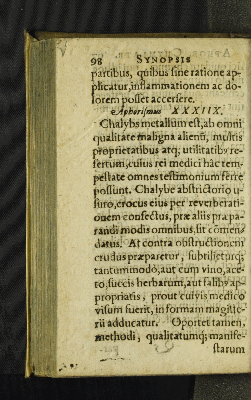 98 SYNOPSIS
partibus, quibus sine ratione ap
plicatur, inflammationem ac do-
lorem posset accersere.
Aphorismus XXXIIX.
Chalybs metallum est, ab omni
qualitate maligna alienū, multis
proprietatibus atq; utilitatibꝰ re-
fertum, cuius rei medici hâc tem-
pestate omnes testimonium ferre
possunt. Chalybe abstrictorio u-
suro, crocus eius per reverberati-
onem confectus, præ aliis præ pa-
randi modis omnibus, sit cōmen-
datus. At contra obstructionem
crudus præparetur, subtilietur q;
tantummodò, aut cum vino, ace-
to, succis herbarum, aut salibꝰ ap-
propriatis, prout cuivis medico
visum fuerit, in formam magiste-
rii adducatur. Oportet tamen,
methodi, qualitatumq; manife-
starum